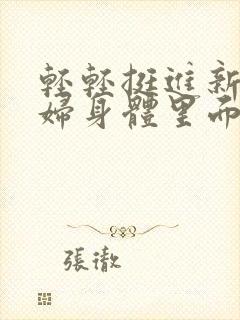 輕輕挺進新
婦身體里而
張徹